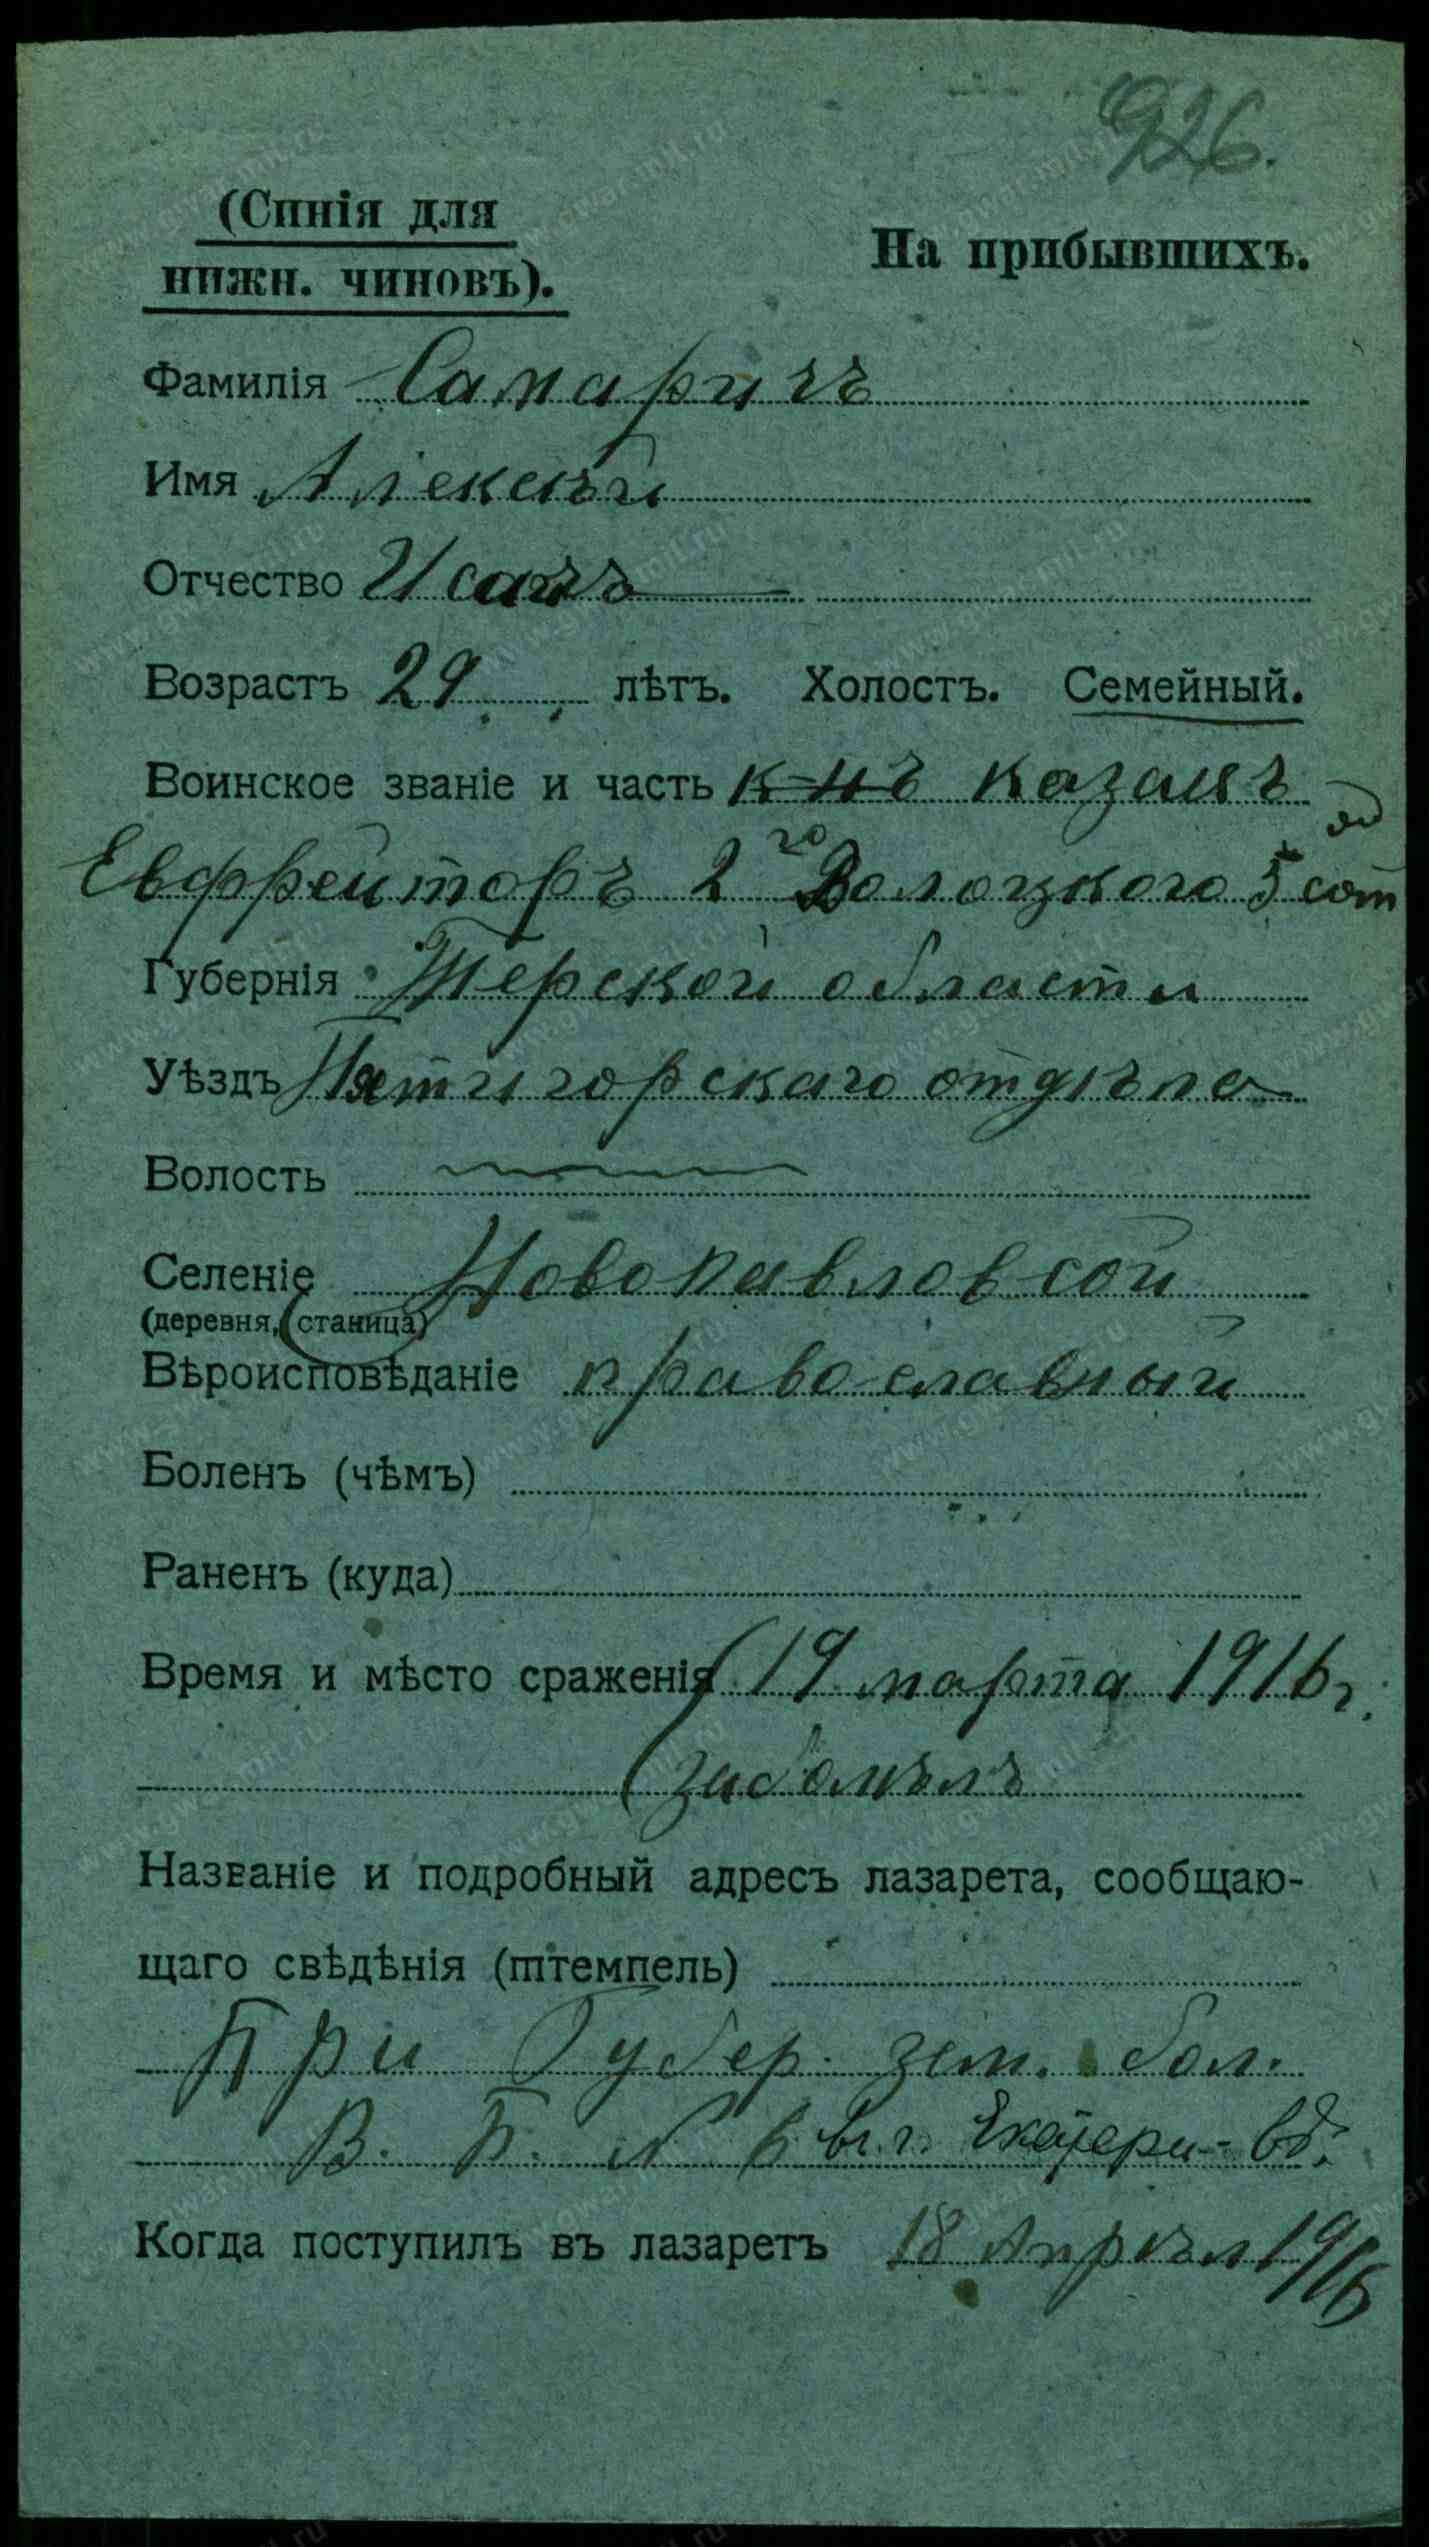 926.
(Синія для
нижн. чиновъ).
На прибывшихъ.
Фамилія Самаричъ
Имя Алексѣй
Отчество Исаавъ
Возрастъ 29 лѣтъ. Холостъ. Семейный.
Воинское званіе и часть казакъ
Евфрейторъ 2го Волоцкого 5ой сот
Губернія Терской области
Уѣздъ Пятигорскаго отдѣла
Волость
Селеніе Новопавловсой
(деревня, станица)
Вѣроисповѣданіе православный
Боленъ (чѣмъ)
Раненъ (куда)
Время и мѣсто сраженія 19 марта 1916 г.
(заболѣлъ
Названіе и подробный адресъ лазарета, сообщаю-
щаго свѣдѣнія (штемпель)
При Губер. зем. бол.
В. П. № 6 въ г. Екатери-вѣ.
Когда поступилъ въ лазаретъ 18 Апрѣл 1916